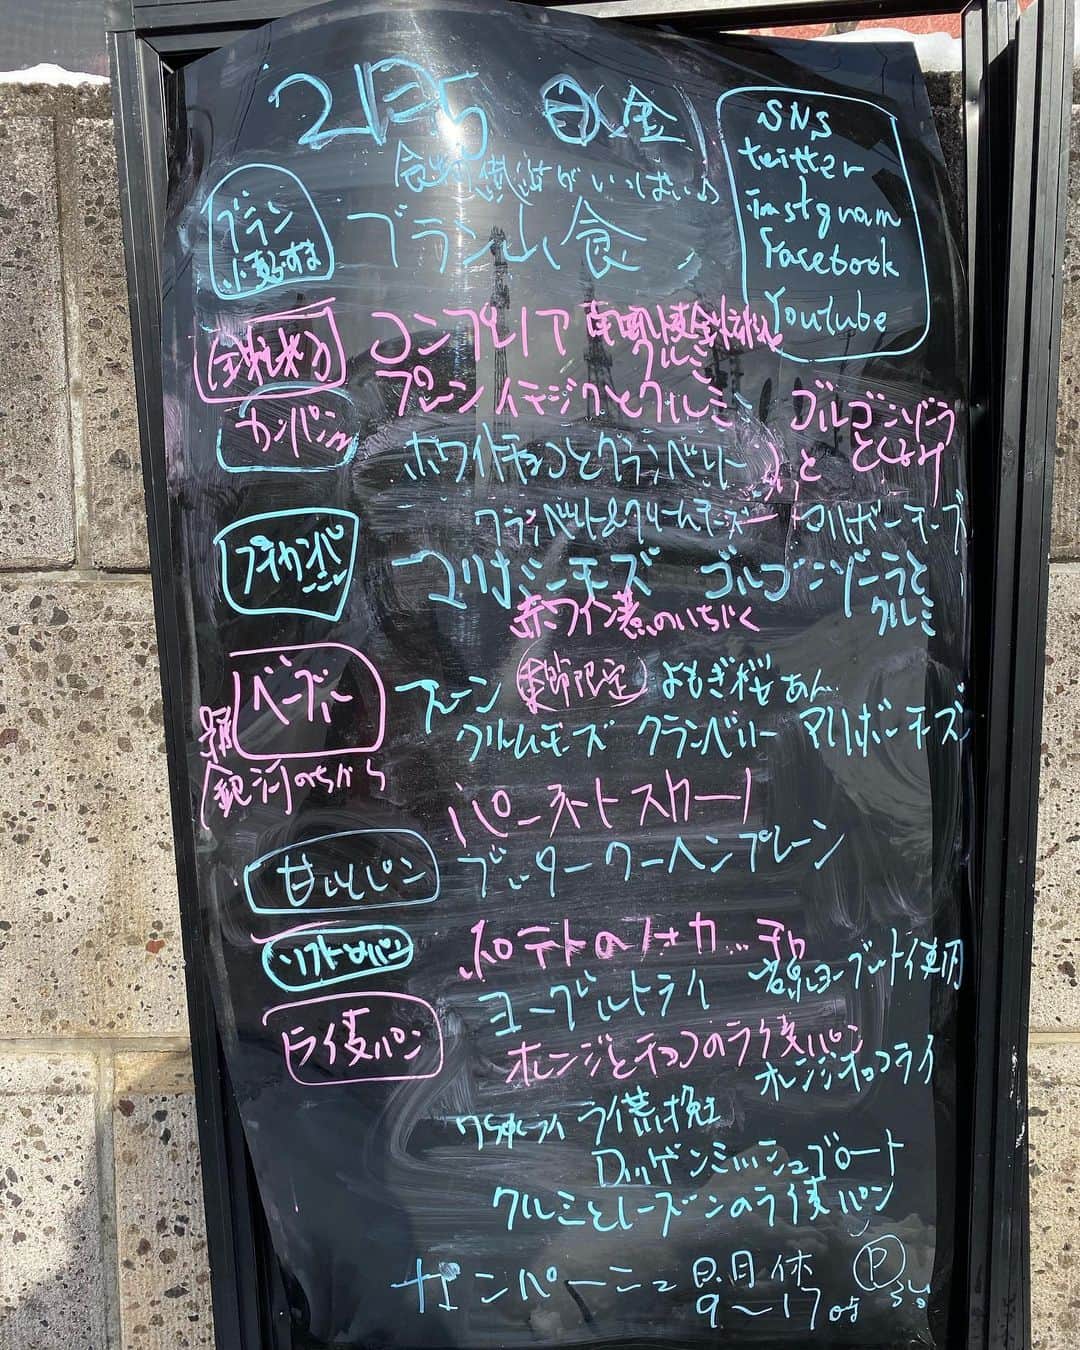 2月5日(金)
SNS
twitter
instgram
Facebook
Youtube
食物繊維がいっぱい♪
ブラン
小麦ふすま
ブラン山食
全粒粉
コンプレノア 南部小麦全粒粉
クルミ
カンパーニュ
プレーン イチジクとクルミ ゴルゴンゾーラ
ホワイトチョコとクランベリー
クランベリー&クリームチーズ マリボーチーズ
マリボーチーズ ゴルゴンゾーラと
クルミ
赤ワイン煮のいちじく
ベーグル
プレーン 季節限定 よもぎ桜あん
クリームチーズ クランベリー マリボーチーズ
銀河のちから
甘いパン
ブッタークーヘンプレーン
ソフトなパン
ポテトのフォカッチャ
ヨーグルトライ 岩泉ヨーグルト使用
ライ麦パン
オレンジとチョコのライ麦パン
オレンジチョコライ
ライ荒挽
ロッゲンミッシュブロート
クルミとレーズンのライ麦パン
カンパーニュ 日.月休 P
9〜17時